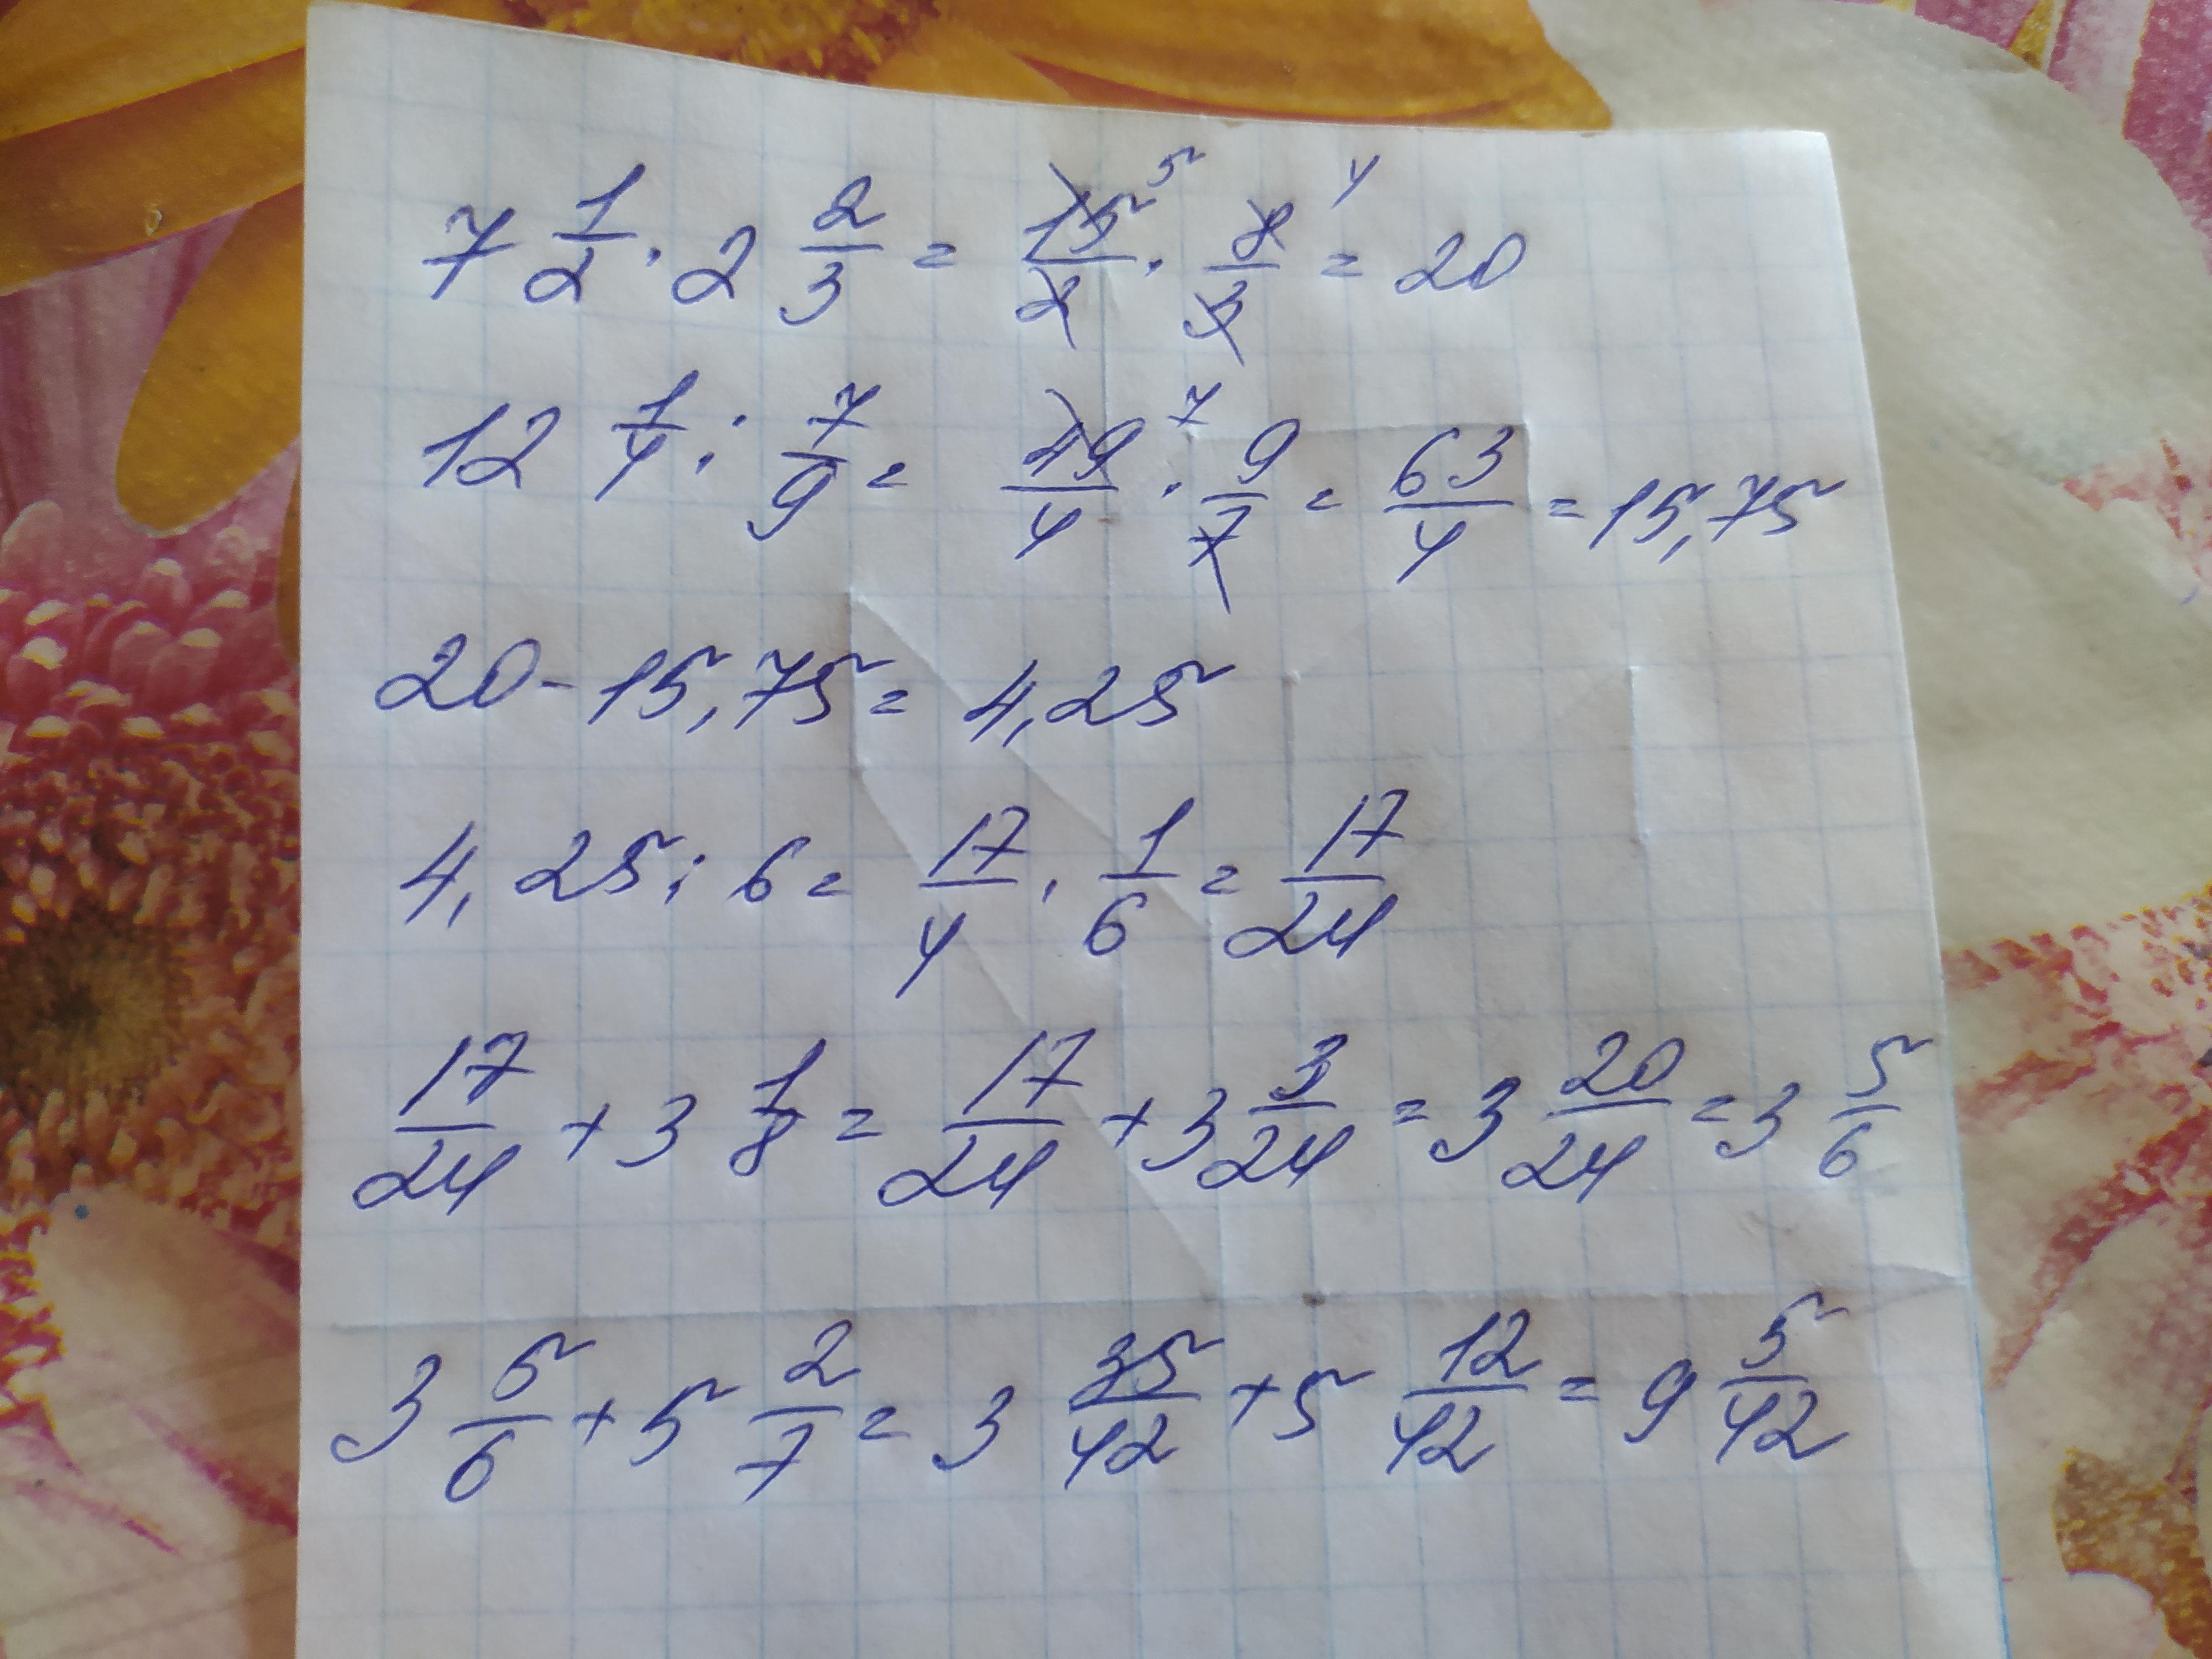 7 1/2 · 2 2/3 = 15/2 5 · 8/3 4 = 20
12 1/4 : 7/9 = 49/4 7 · 9/7 = 63/4 = 15,75
20 - 15,75 = 4,25
4,25 : 6 = 17/4 · 1/6 = 17/24
17/24 + 3 1/8 = 17/24 + 3 3/24 = 3 20/24 = 3 5/6
3 5/6 + 5 2/7 = 3 35/42 + 5 12/42 = 9 5/42